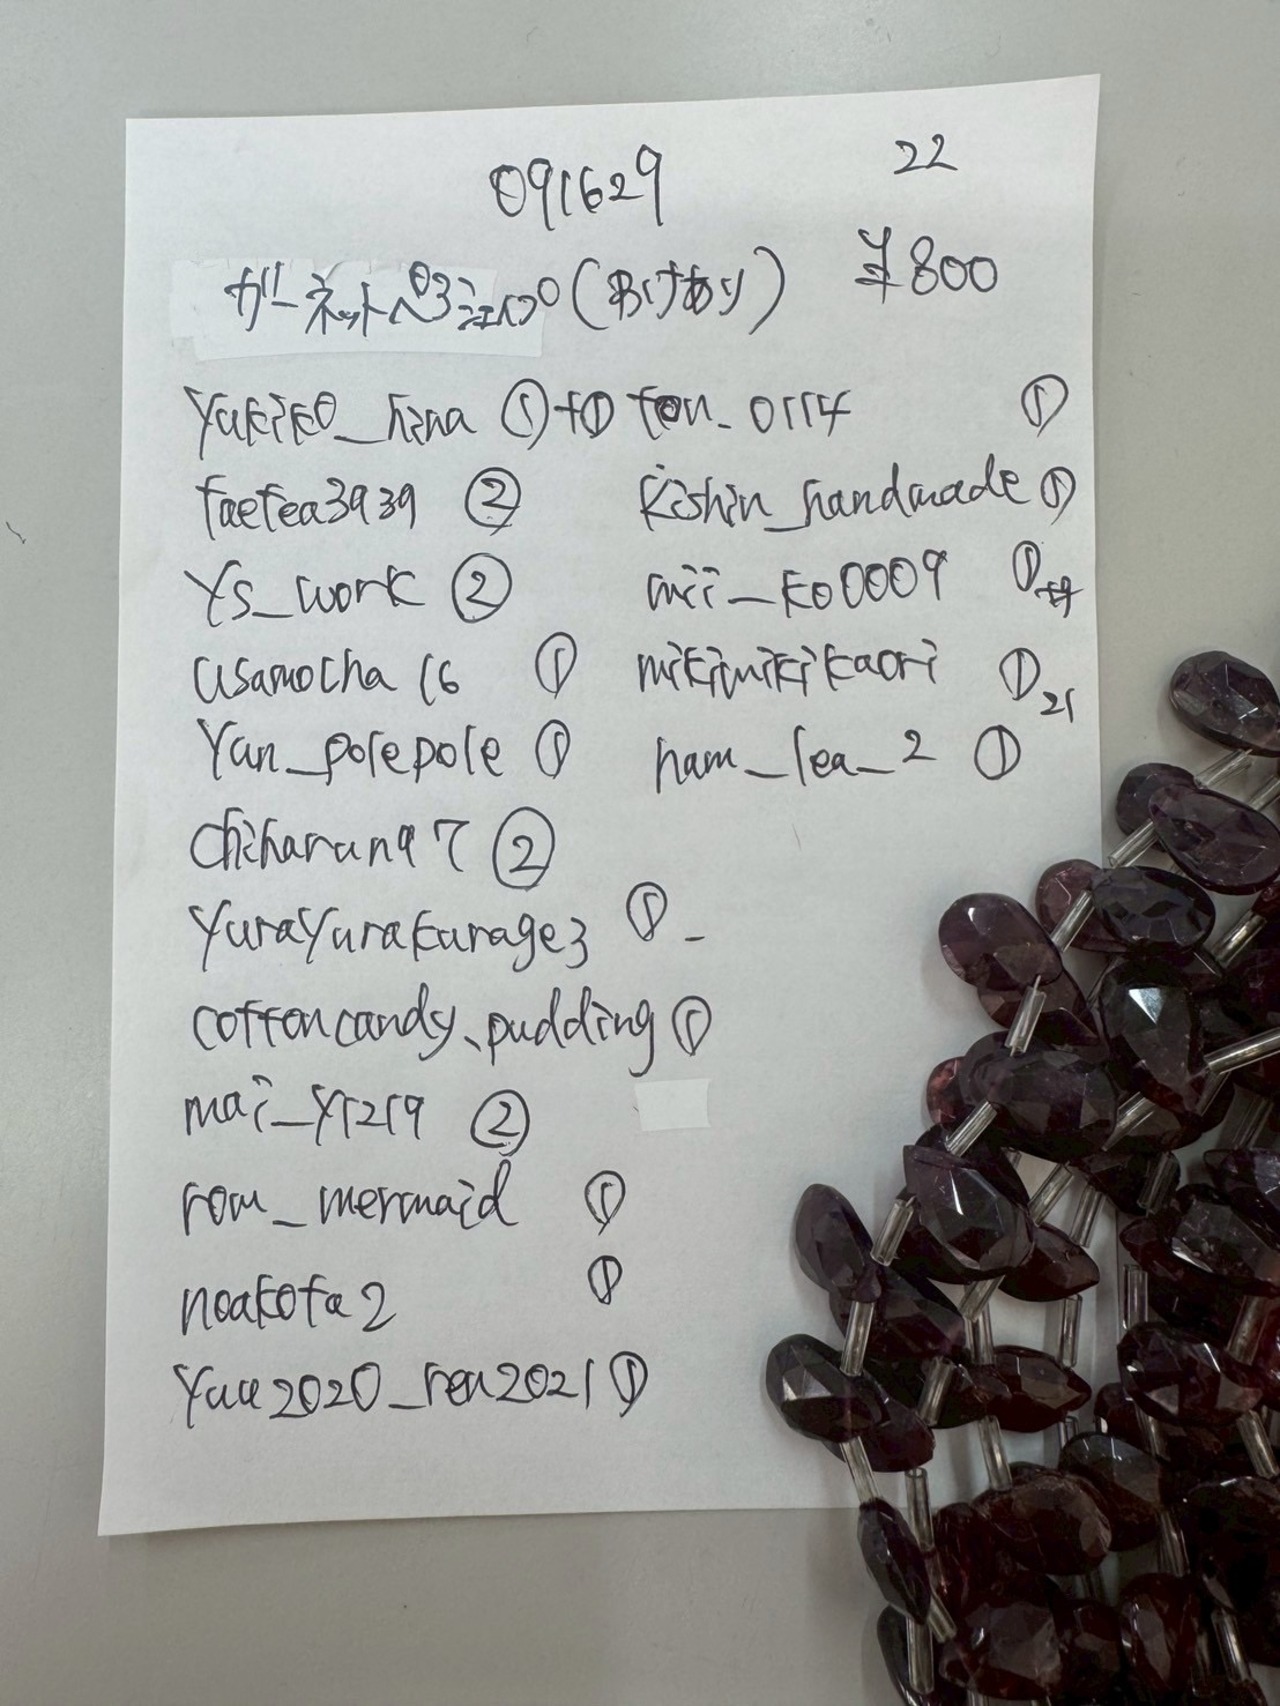 091629
22
ガーネットペアシェイプ(わけあり)
¥800
yukiko_hina ①+①
taetea3939 ②
ys_work ②
usamocha16 ①
yan_polepole ①
chiharun97 ②
yurayurakurage3 ① -
cottoncandy.pudding ①
mai_y1219 ②
rom_mermaid ①
noakota2 ①
yuu2020_ren2021 ①
ton_0114 ①
kishin_handmade ①
mii_ko0009 ①
mikimikikaori ① 21
nam_lea_2 ①